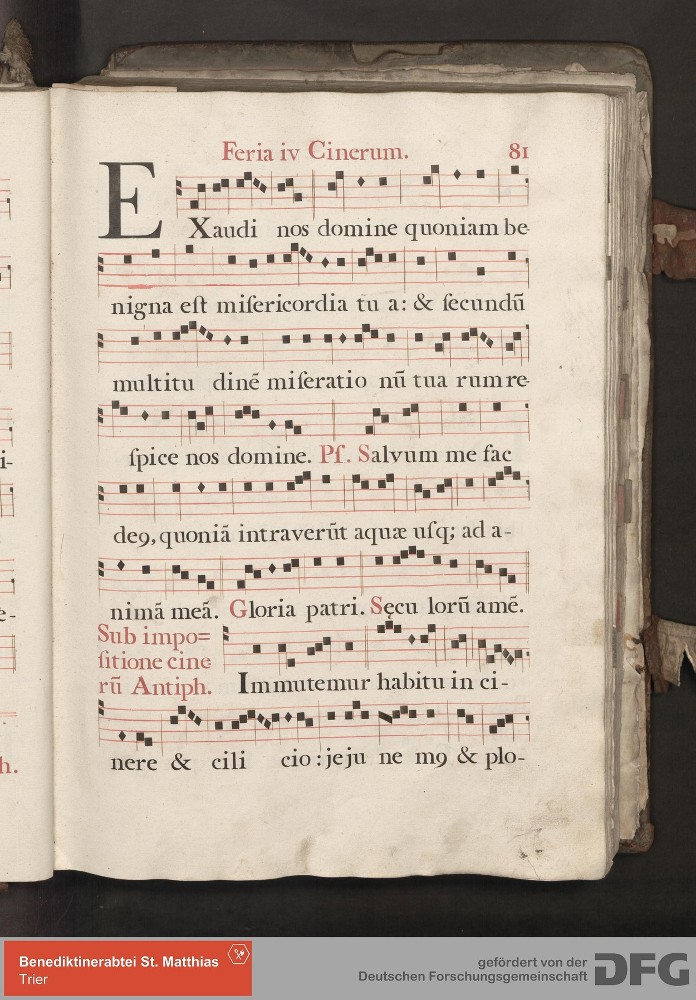 Feria iv Cinerum. 81
EXaudi nos domine quoniam be-
nigna eſt miſericordia tu a: & ſecundũ
multitu dinẽ miſeratio nũ tua rum re-
ſpice nos domine. Pſ. Salvum me fac
de9, quoniã intraverũt aquæ uſq; ad a-
nimã meã. Gloria patri. Sęcu lorũ amẽ.
Sub impo=
ſitione cine
rũ Antiph. Immutemur habitu in ci-
nere & cili cio: jeju ne m9 & plo-
i-
e-
h.
Benediktinerabtei St. Matthias
Trier
gefördert von der
Deutschen Forschungsgemeinschaft
DFG